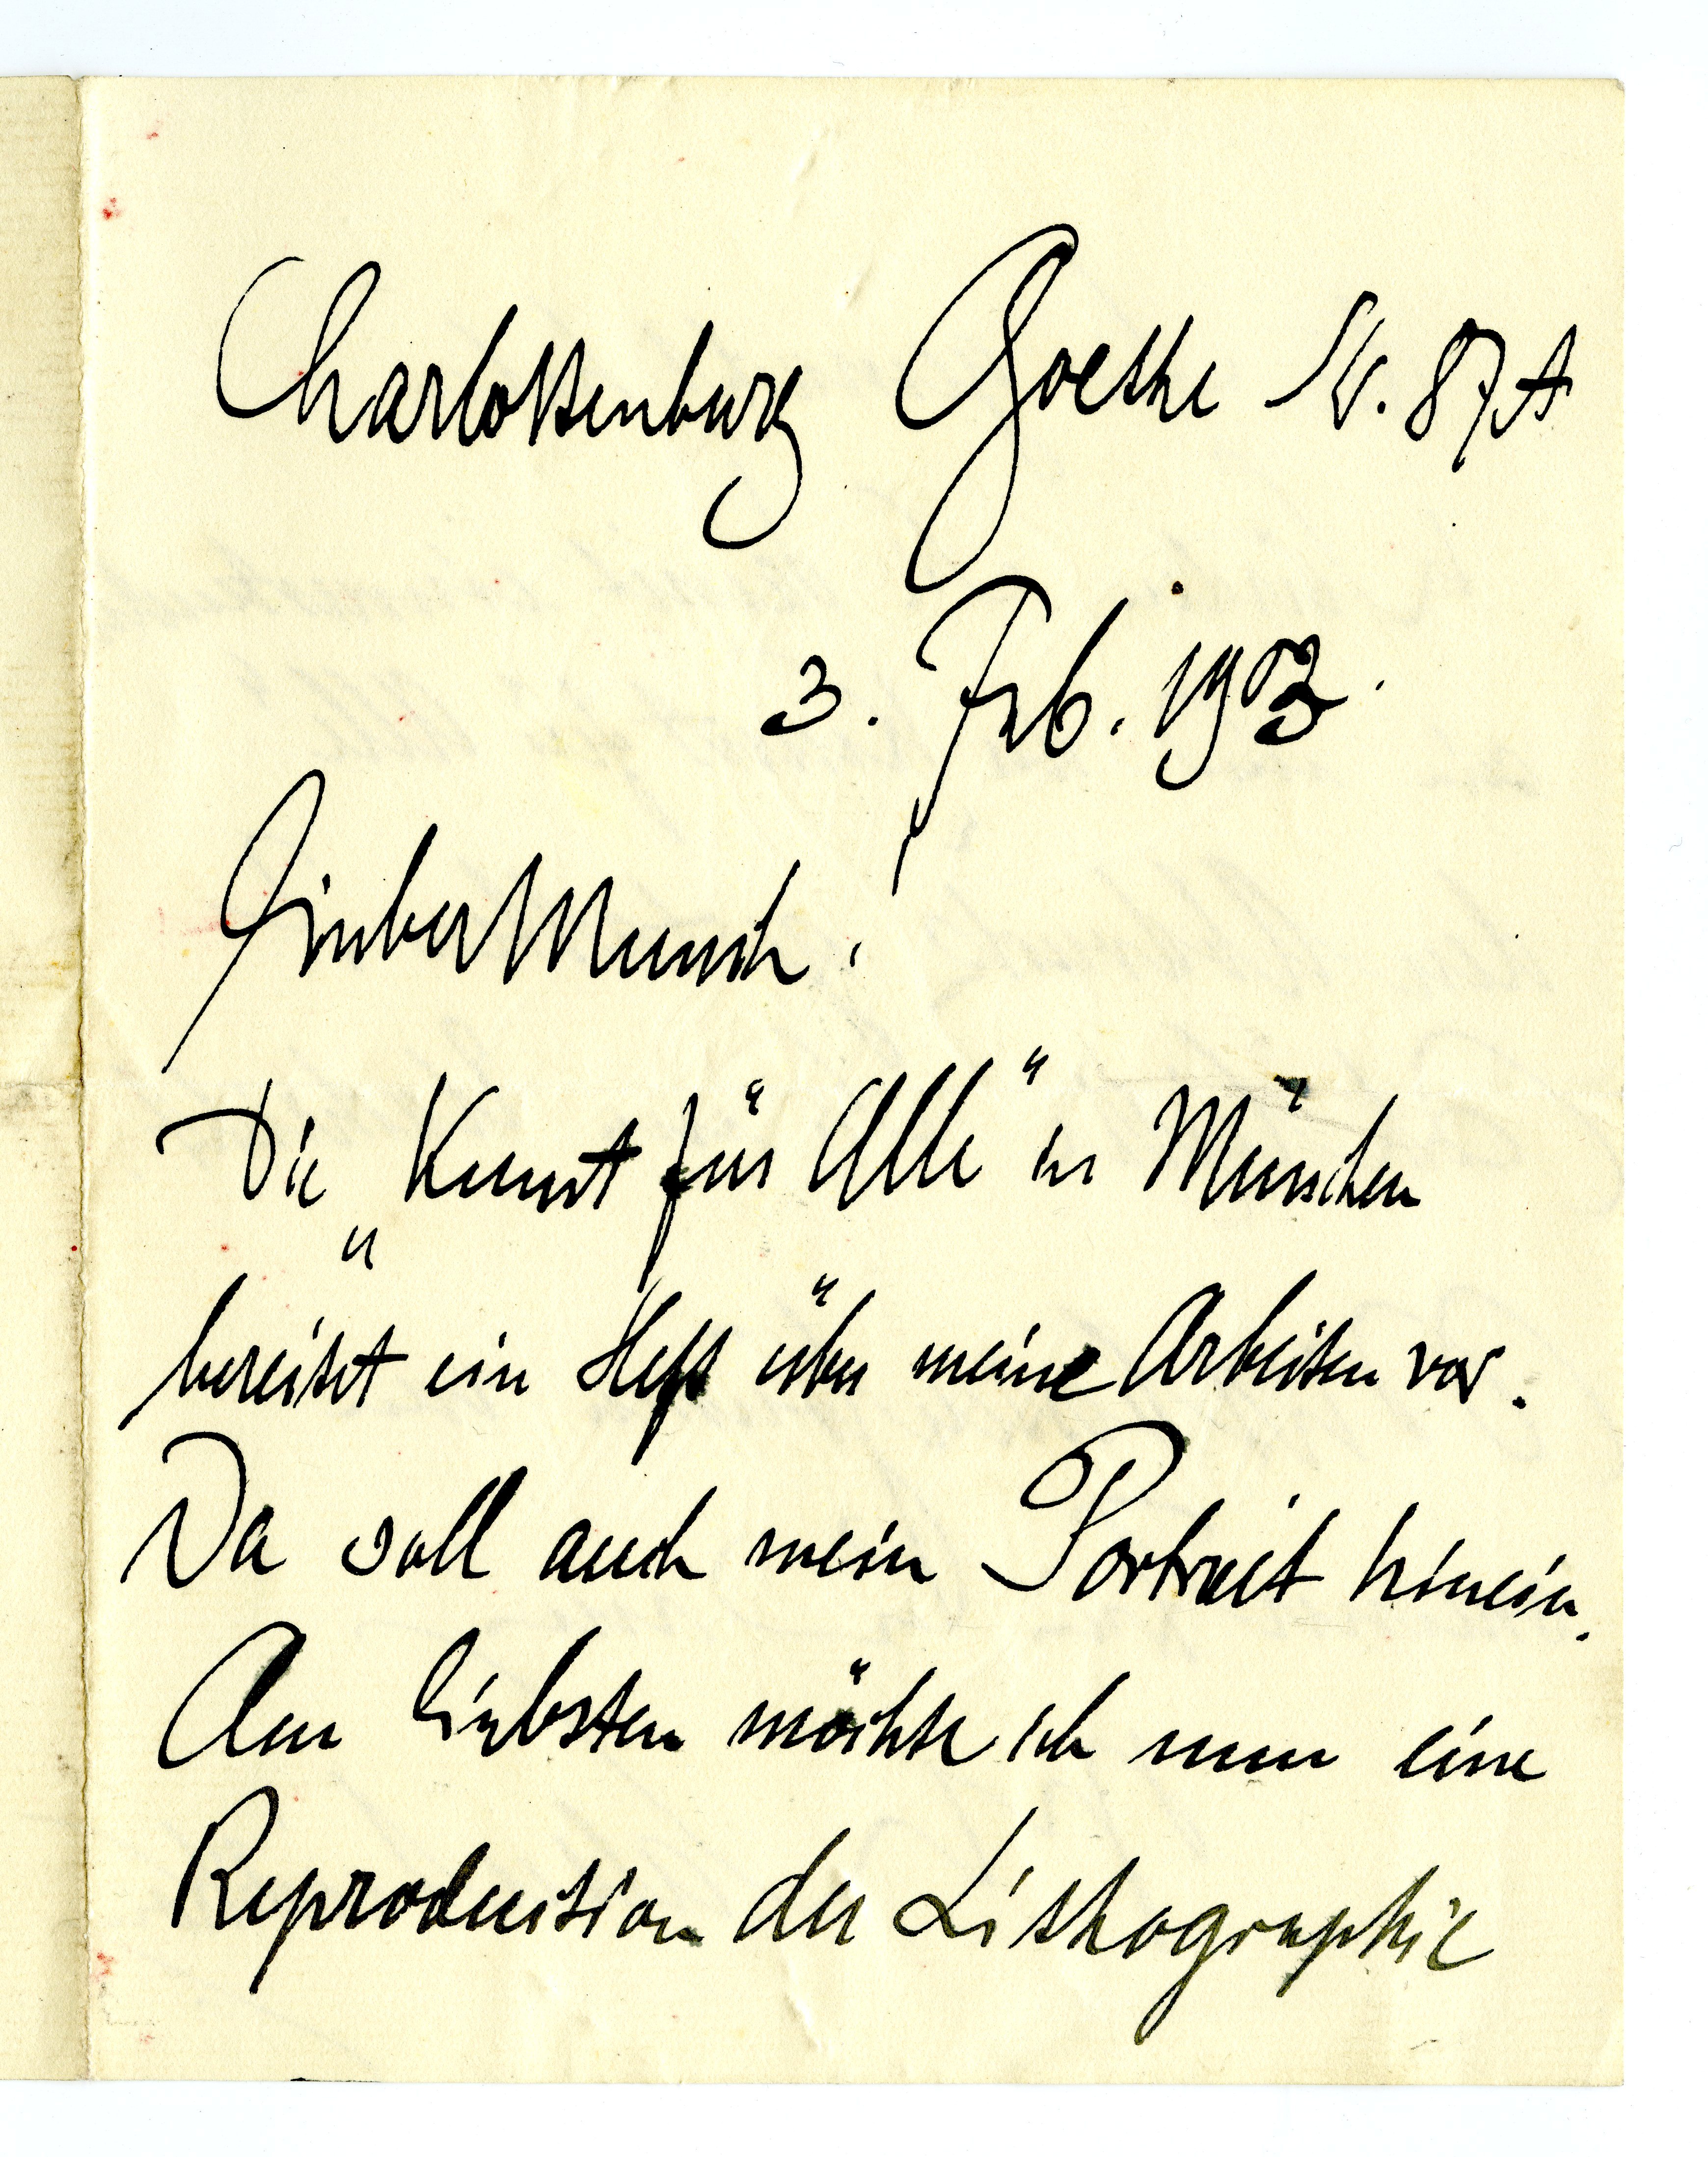 Charlottenburg Goethe Str. 87A
3. Feb. 1903.
Lieber Munch!
Die „Kunst für Alle" in München
bereitet ein Heft über meine Arbeiten vor.
Da soll auch mein Portrait hinein.
Am liebsten möchte ich nun eine
Reproduction der Lithographie